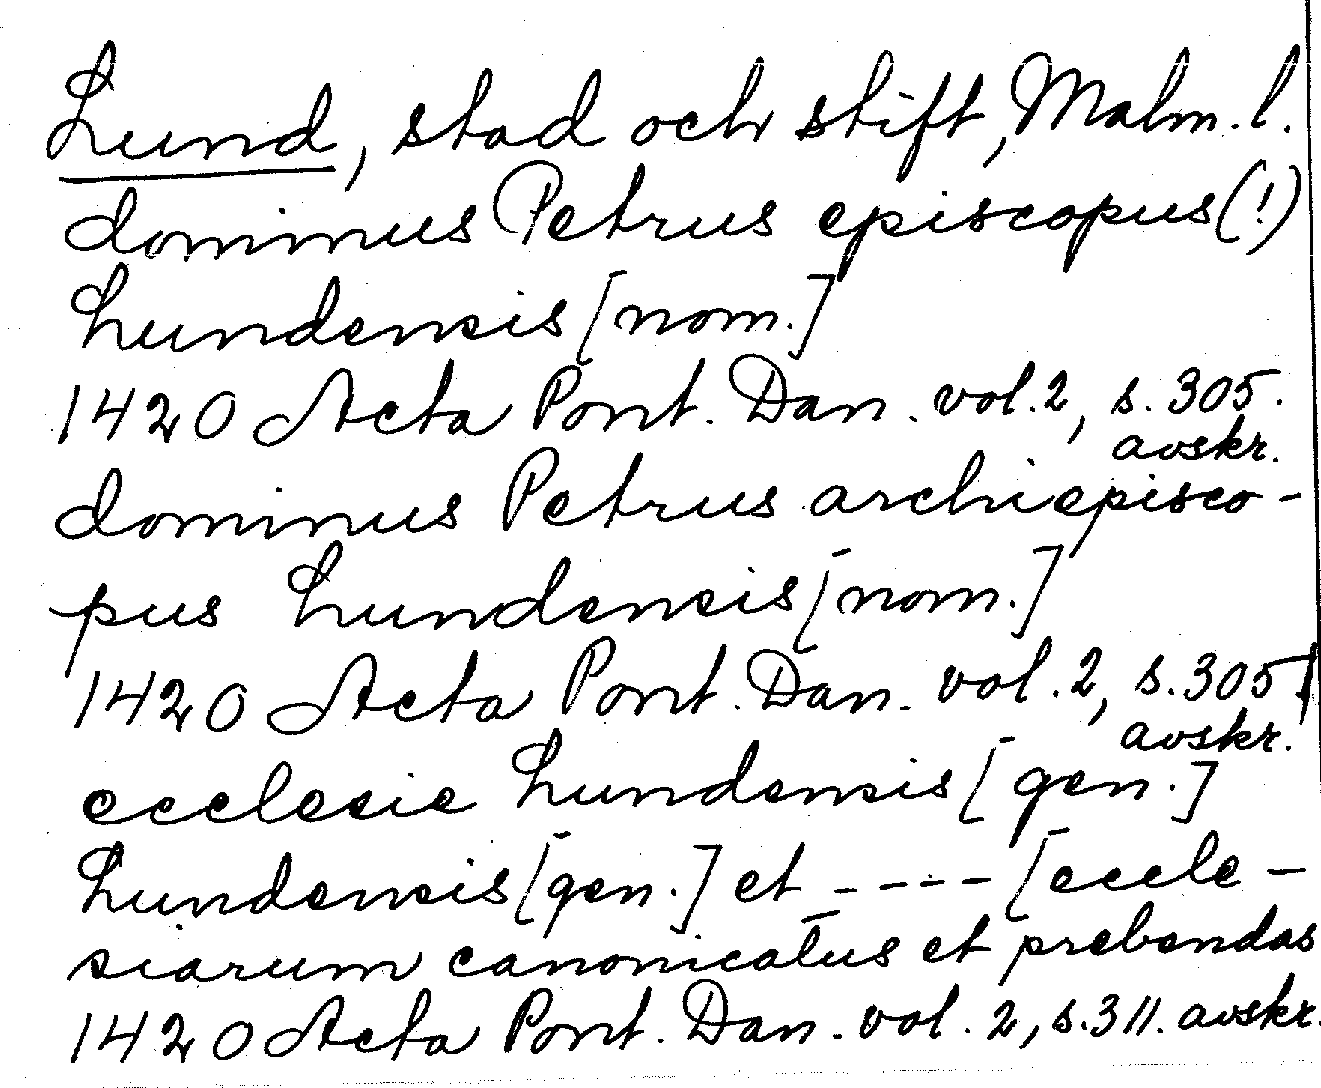 Lund, stad och stift, Malm. l.
dominus Petrus episcopus (!)
Lundensis [nom.]
1420 Acta Pont. Dan. vol. 2, s. 305.
avskr.
dominus Petrus archiepisco-
pus Lundensis [nom.]
1420 Acta Pont. Dan. vol. 2, s. 305
avskr.
ecclesie Lundensis [gen.]
Lundensis [gen.] et ---- [eccle-
siarum canonicatus et prebendas
1420 Acta Pont. Dan. vol. 2, s. 311. avskr.